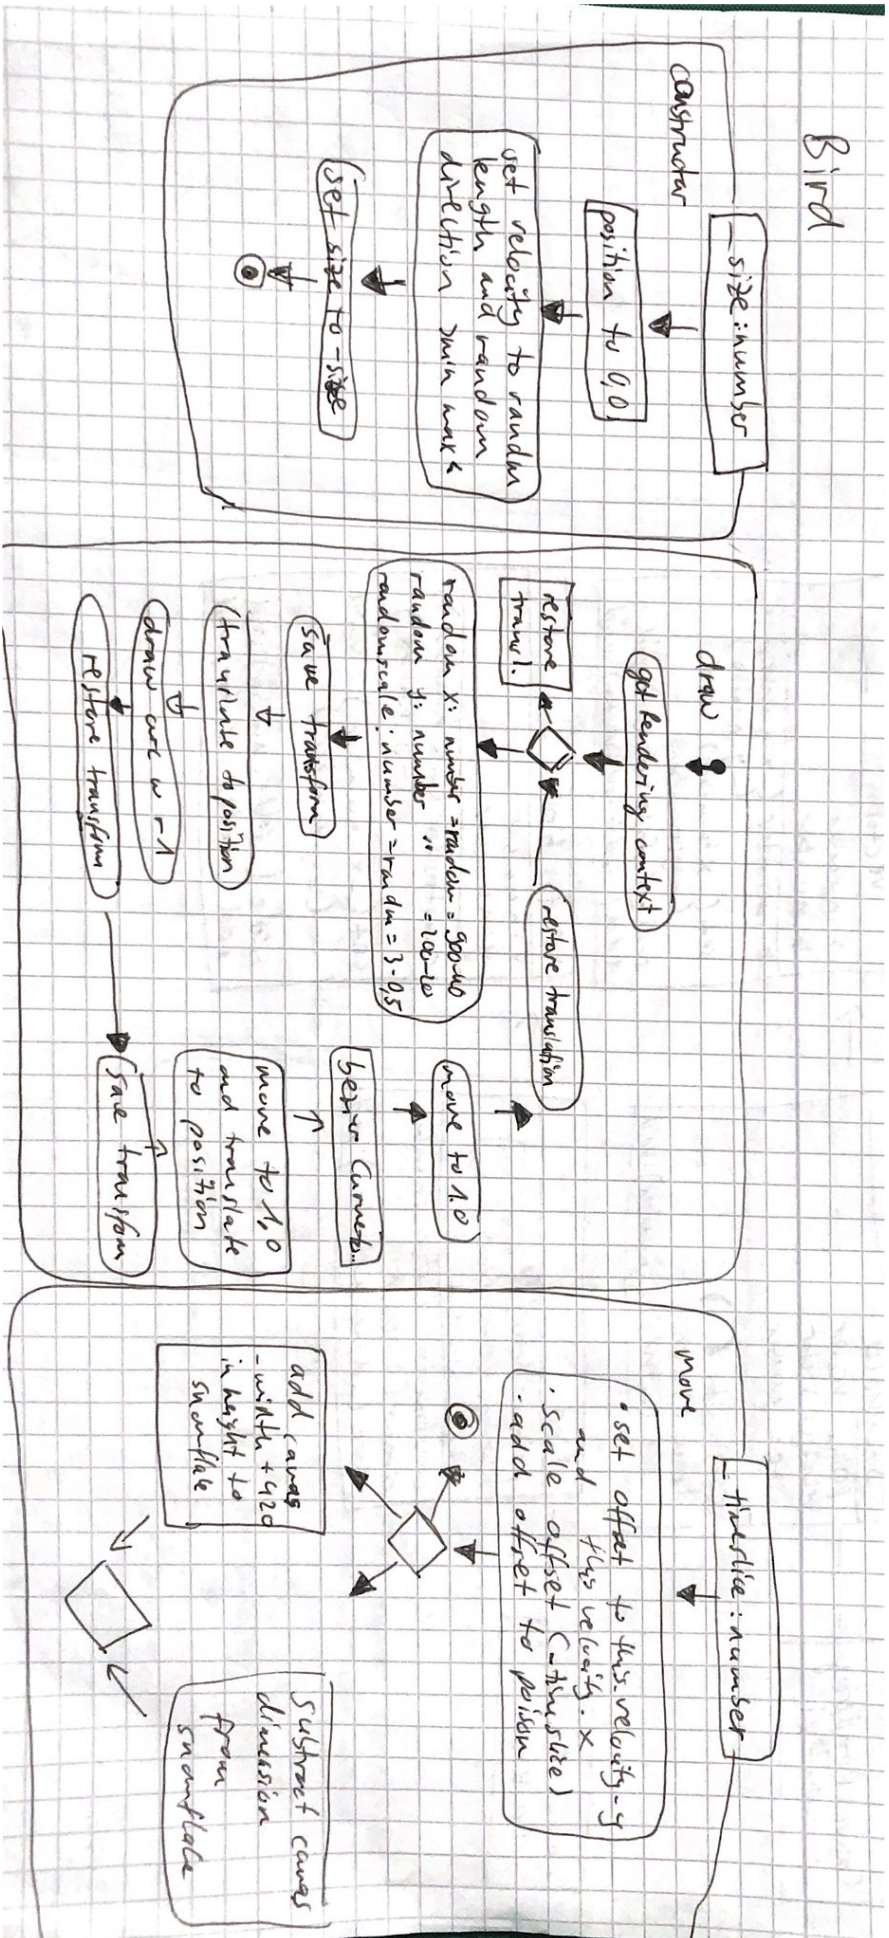 Bird
constructor
_size: number
position to 0,0
set velocity to random
length and random
direction >min max<
set size to -size
draw
get Rendering context
restore
transl.
restore translation
random x: number = random = 900-40
random y: number " = 200-20
randomscale: number = random = 3-0,5
save transform
translate to position
draw arc w r1
restore transform
save transform
move to 1,0
and translate
to position
bezier Curveto...
move to 1.0
move
_timeslice: number
. set offset to this.velocity-y
and this velocity.x
. scale offset (-timeslice)
. add offset to poison
add canvas
-width + 420
in height to
snowflake
subtract canvas
dimension
from
snowflake